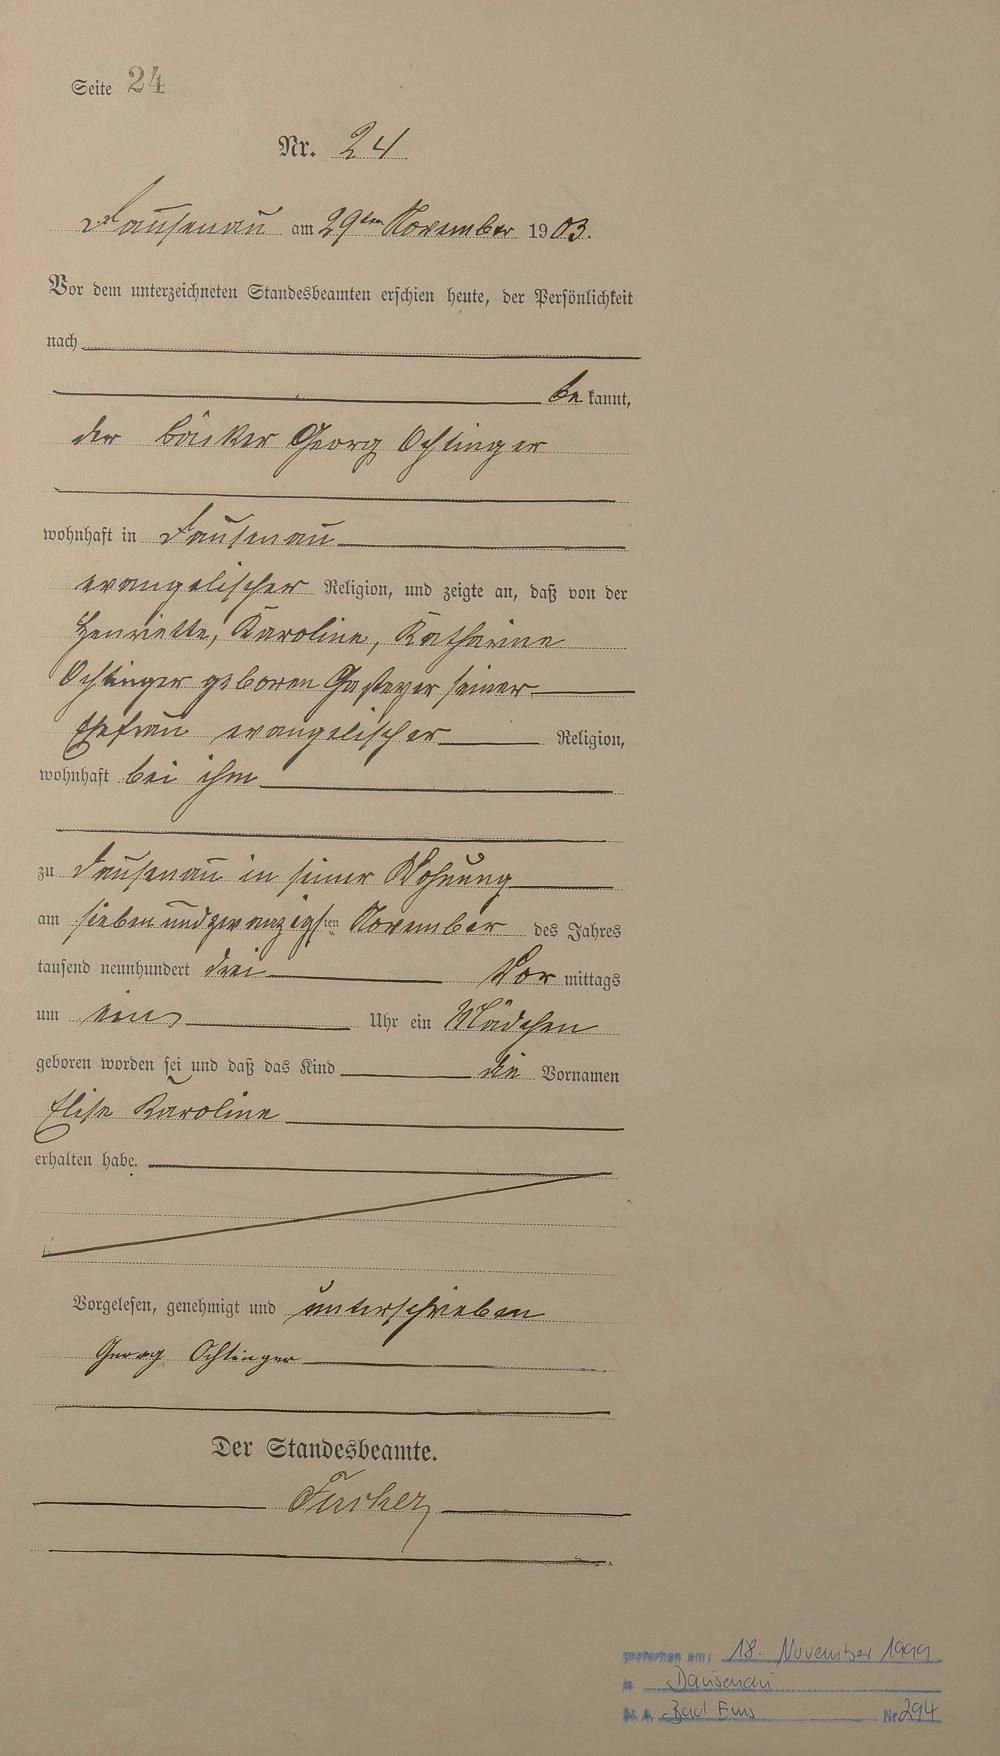 Seite 24
Nr. 24
Dausenau am 29ten November 1903.
Vor dem unterzeichneten Standesbeamten erschien heute, der Persönlichkeit
nach
be kannt,
der Bäcker Georg Ochtinger
wohnhaft in Dausenau
evangelischer Religion, und zeigte an, daß von der
Henriette, Karoline, Katharine
Ochtinger geboren seiner
Ehefrau evangelischer Religion,
wohnhaft bei ihm
zu Dausenau in seiner Wohnung
am sieben und zwanzigsten November des Jahres
tausend neunhundert drei Vor mittags
um eins Uhr ein Mädchen
geboren worden sei und daß das Kind die Vornamen
Elise Karoline
erhalten habe.
Vorgelesen, genehmigt und unterschrieben
Georg Ochtinger
Der Standesbeamte.
gestorben am: 18. November 1999
in Dausenau
St. A. Bad Ems Nr. 294